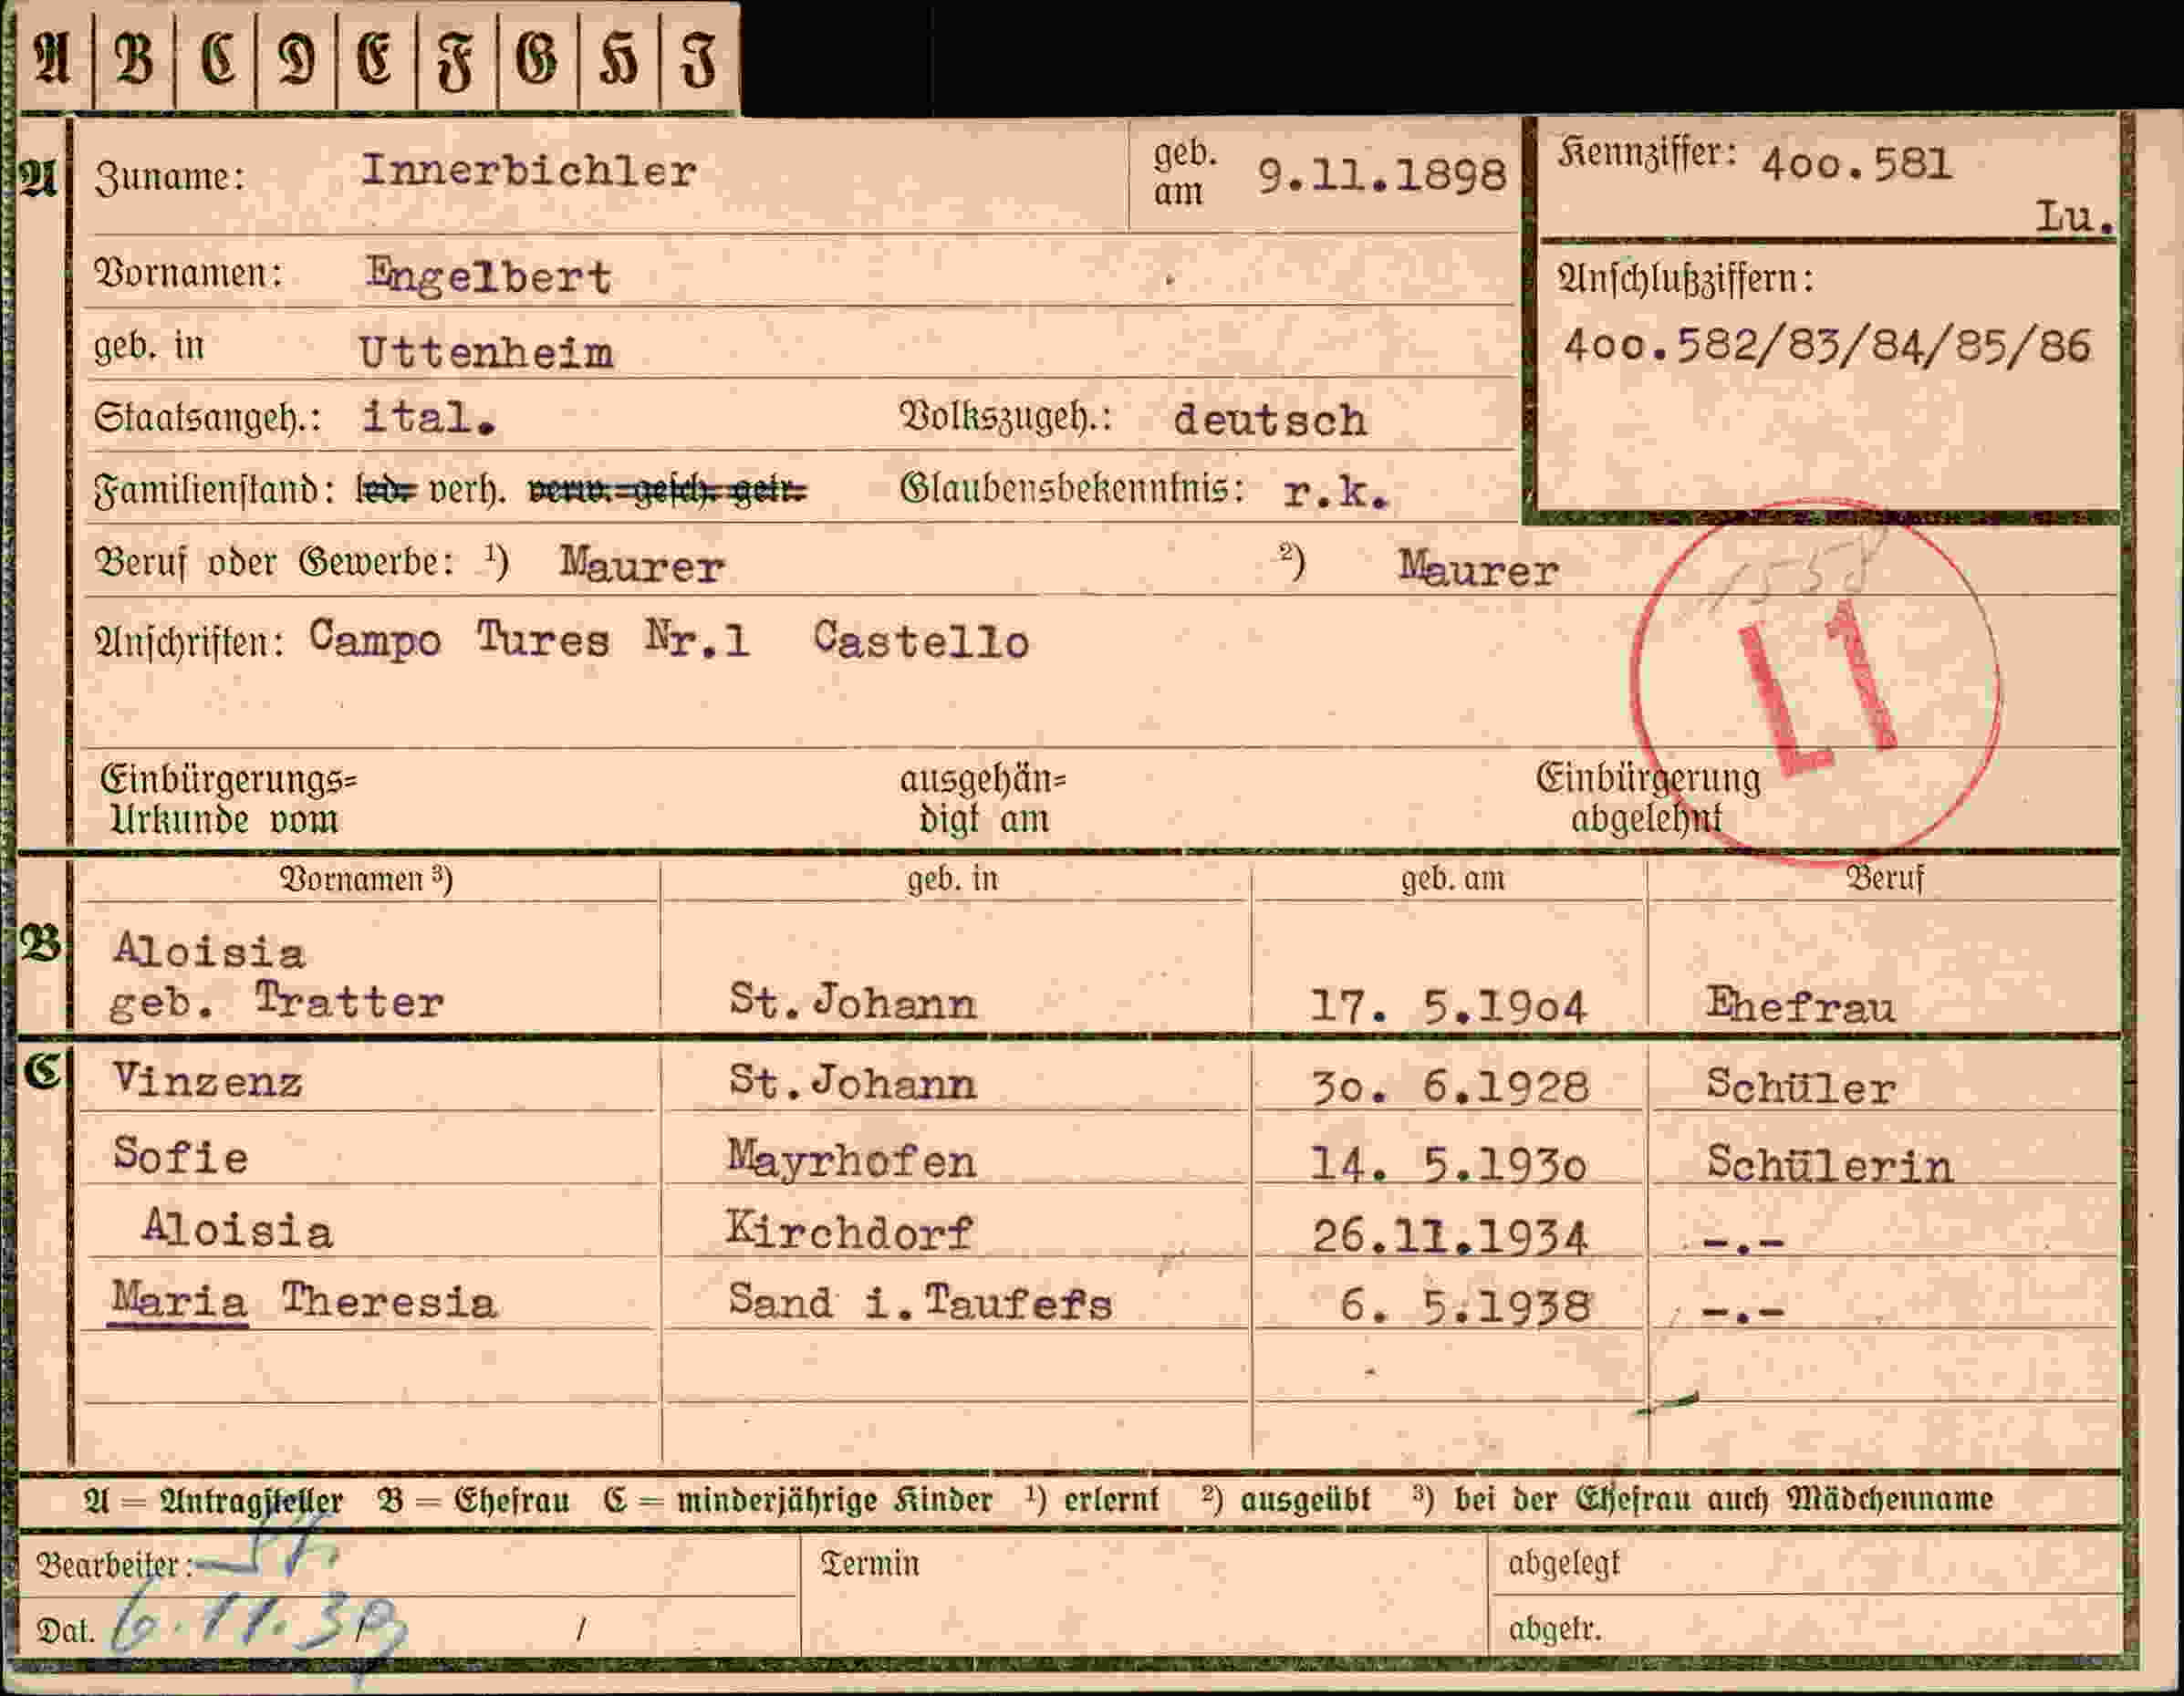 A B C D E F G H I
A Zuname: Innerbichler geb. am 9.11.1898
Kennziffer: 4oo.581
Lu.
Vornamen: Engelbert
Anschlußziffern:
4oo.582/83/84/85/86
geb. in Uttenheim
Staatsangeh.: ital. Volkszugeh.: deutsch
Familienstand: led. verh. verw. gesch. getr. Glaubensbekenntnis: r.k.
Beruf oder Gewerbe: ¹) Maurer ²) Maurer
L1
Anschriften: Campo Tures Nr.1 Castello
Einbürgerungs= ausgehän= Einbürgerung
Urkunde vom digt am abgelehnt
Vornamen ³) geb. in geb. am Beruf
B Aloisia
geb. Tratter St.Johann 17. 5.19o4 Ehefrau
C Vinzenz St.Johann 3o. 6.1928 Schüler
Sofie Mayrhofen 14. 5.193o Schülerin
Aloisia Kirchdorf 26.11.1934 -.-
Maria Theresia Sand i.Taufefs 6. 5.1938 -.-
A = Antragsteller B = Ehefrau C = minderjährige Kinder ¹) erlernt ²) ausgeübt ³) bei der Ehefrau auch Mädchenname
Bearbeiter: Termin abgelegt
Dat. 6.11.39 / abgetr.